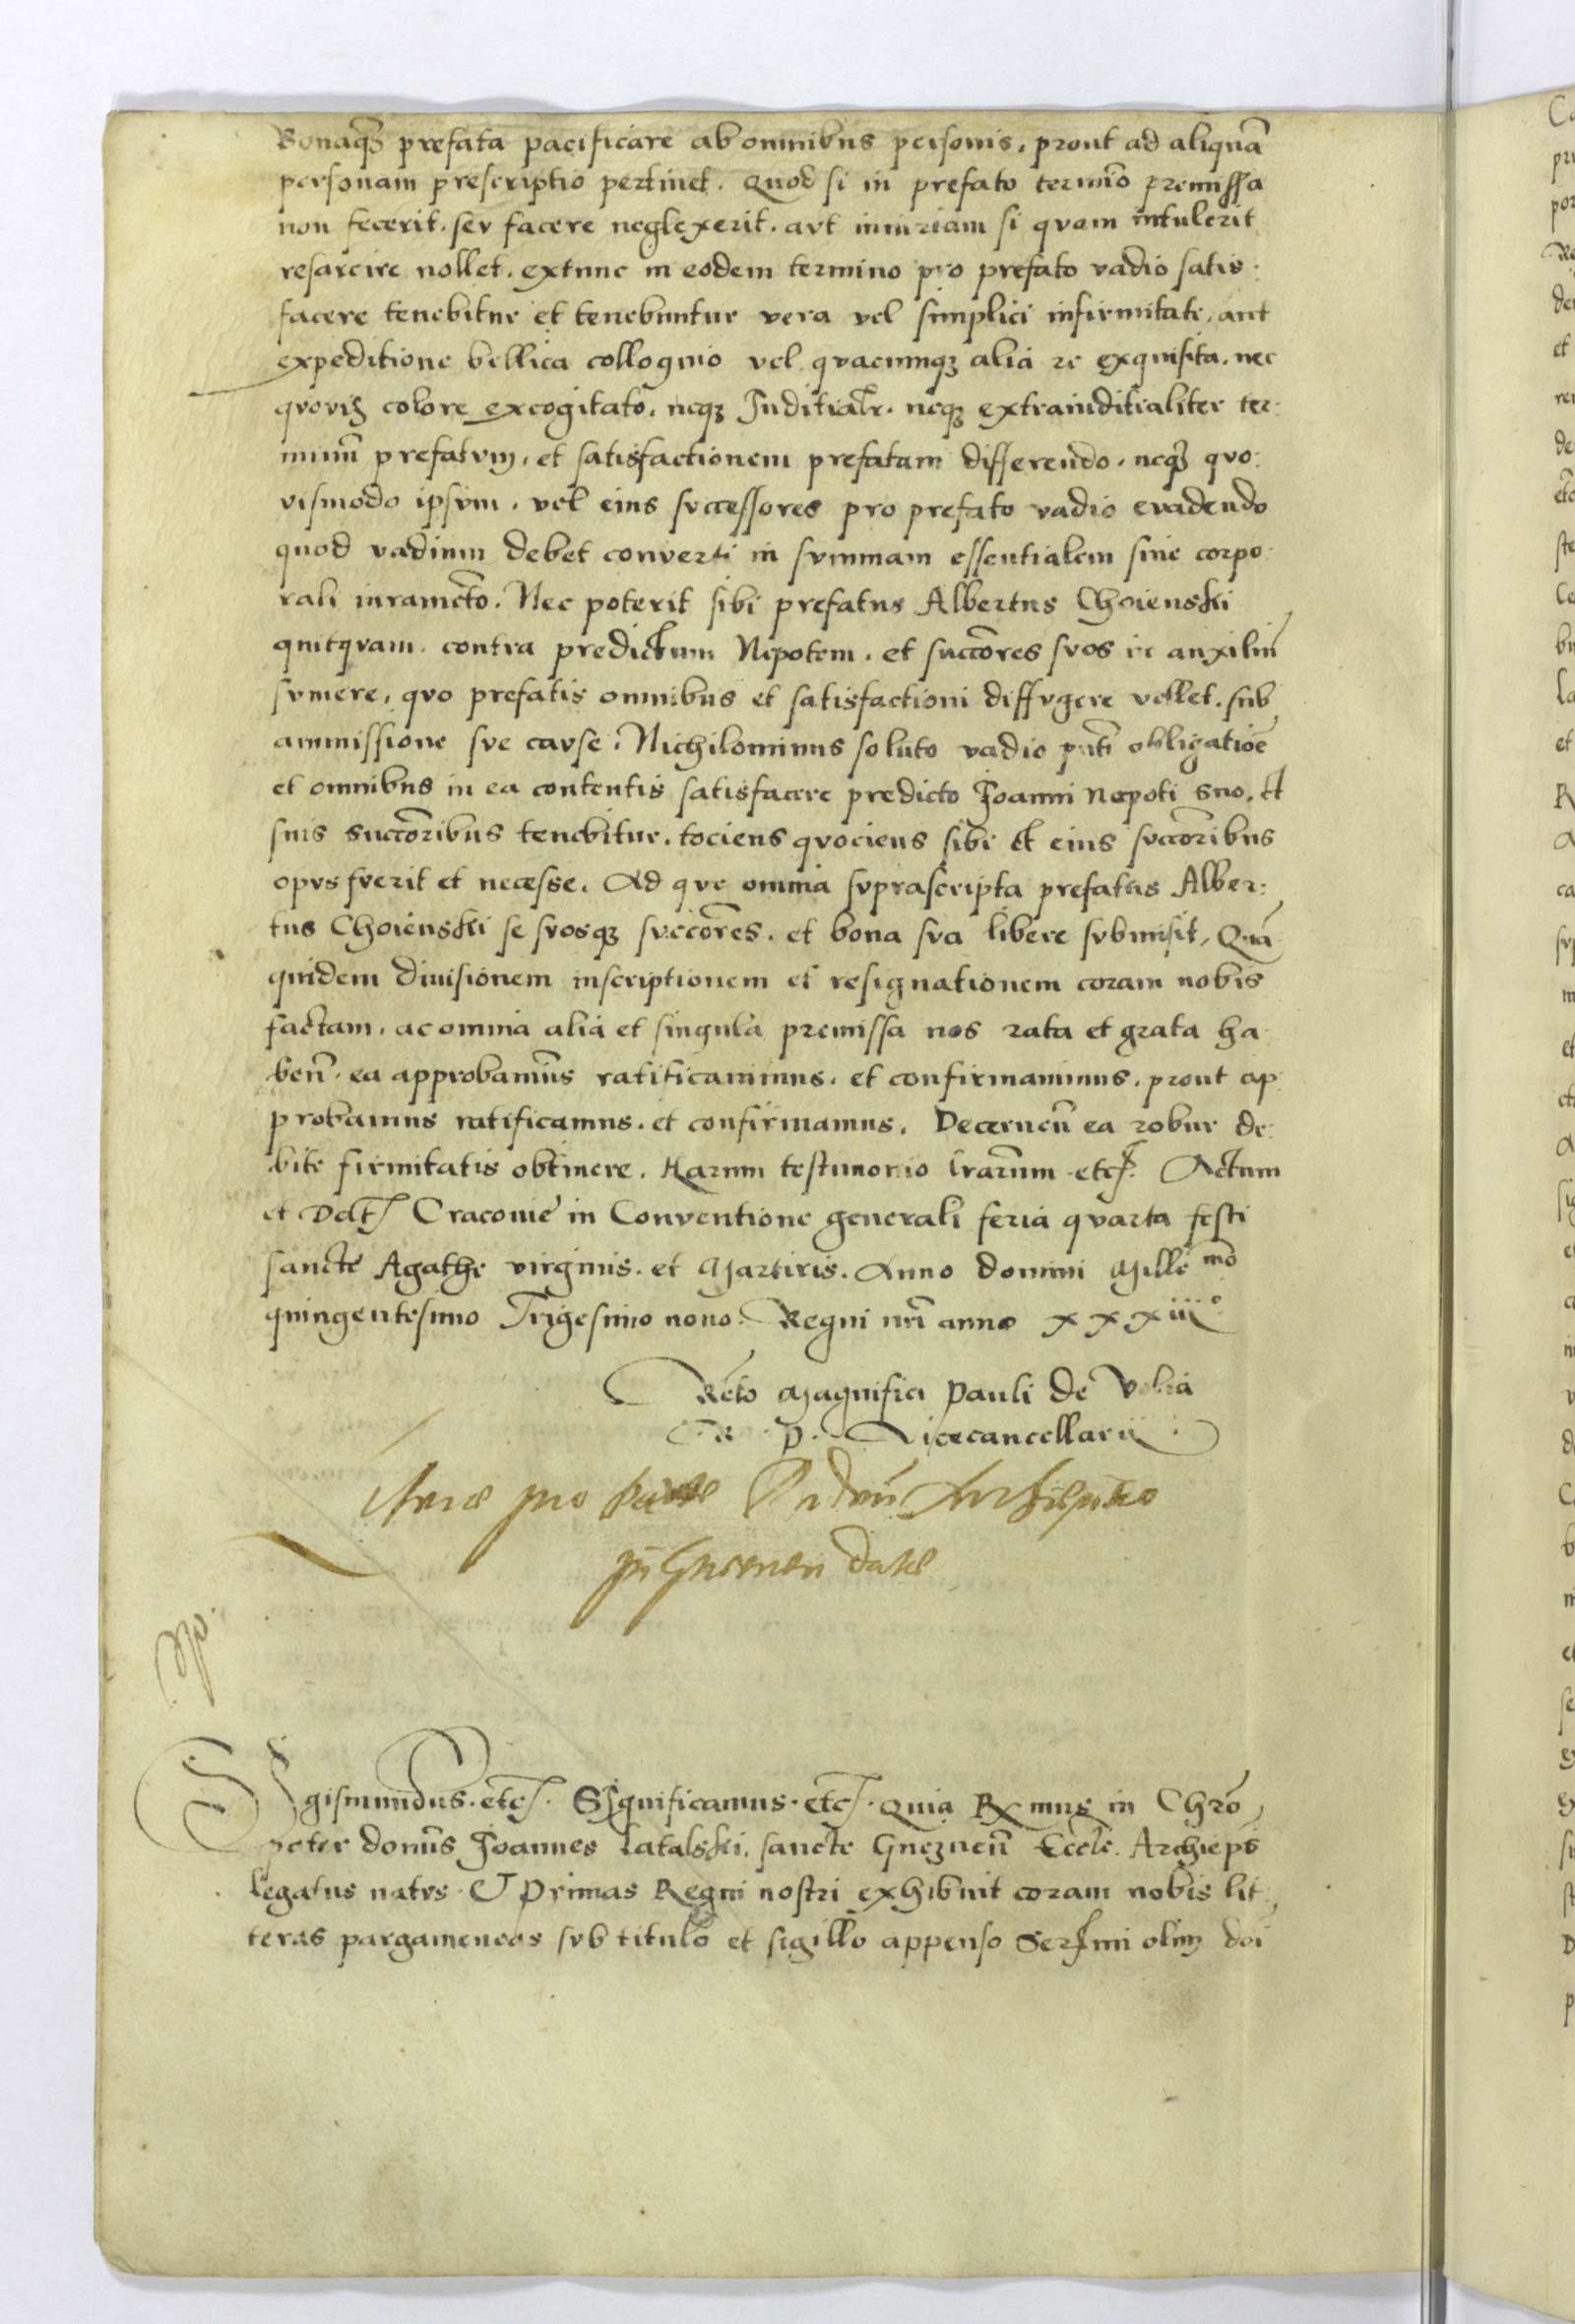 Bonaqȝ prefata pacificare ab omnibus personis, prout ad aliquā
personam prescriptio pertinet. Quod si in prefato termīo premissa
non fecerit. sev facere neglexerit. avt iniuriam si qvam intulerit
resarcire nollet. extunc in eodem termino pro prefato vadio satis:
facere tenebitur et tenebuntur vera vel simplici infirmitate, aut
expeditione bellica colloquio vel qvacumqȝ alia re exquisita. nec
qvovis colore excogitato. neqȝ Juditialr. neqȝ extraiuditialiter ter:
minū prefatvm, et satisfactionem prefatam differendo. neqȝ qvo:
vismodo ipsvm. vel eius svccessores pro prefato vadio evadendo
quod vadium debet converti in svmmam essentialem sine corpo:
rali iuramēto. Nec poterit sibi prefatus Albertus Choienski
quitqvam. contra predictum Nepotem. et succōres svos in auxiliū
svmere, qvo prefatis omnibus et satisfactioni diffvgere vellet. sub
ammissione sve cavse. Nichilominus soluto vadio pnti obligatiōe
et omnibus in ea contentis satisfacere predicto Joanni Nepoti suo. et
suis succōribus tenebitur. tociens qvociens sibi et eius svccōribus
opvs fverit et necesse. Ad qve omnia svprascripta prefatus Alber:
tus Choienski se svosqȝ svccōres. et bona sva libere svbmisit, Quā
quidem divisionem inscriptionem et resignationem coram nobis
factam. ac omnia alia et singula premissa nos rata et grata ha
ben̄. ea approbamus ratificavimus. et confirmavimus. prout ap
probamus ratificamus. et confirmamus. Decernen̄ ea robur de:
bite firmitatis obtinere. Harum testimonio lrarum etc. Actum
et Dat Cracovie in Conventione generali feria qvarta festi
sancte Agathe virginis. et Martiris. Anno domini Mille mo
quingentesimo Trigesimo nono. Regni nrī anno xxxiii°
Relo Magnifici Pauli de Volia
R. P. Vicecancellarii
pro parte
date
Sigismundus. etc. Significamus. etc. Quia Rx mus in Chrō
pater domūs Joannes Latalski. sancte Gneznen̄ Eccle. Archieps
legatus natvs. Et Primas Regni nostri exhibuit coram nobis lit
teras pargameneas svb titulo et sigillo appenso Sermi olim doi